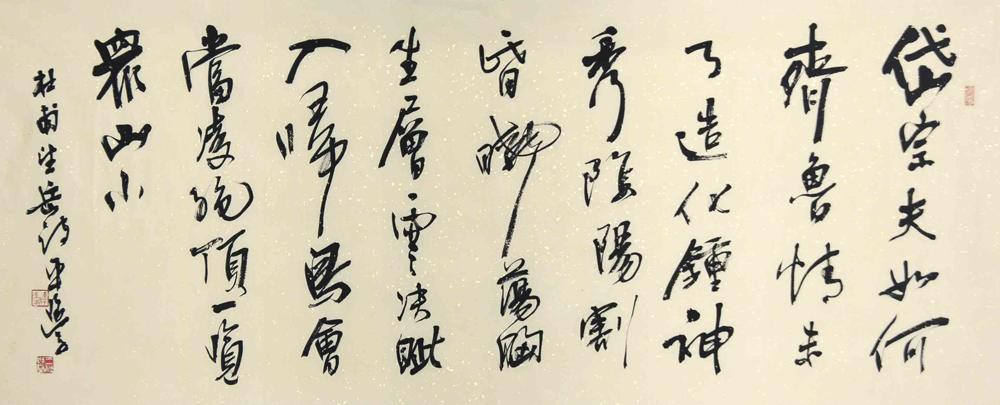 岱宗夫如何
齊魯情未
了造化鍾神
秀陰陽割
昏曉蕩胸
生層雲决眦
入歸鳥會
當凌絕頂一覽
眾山小
杜甫望岳詩